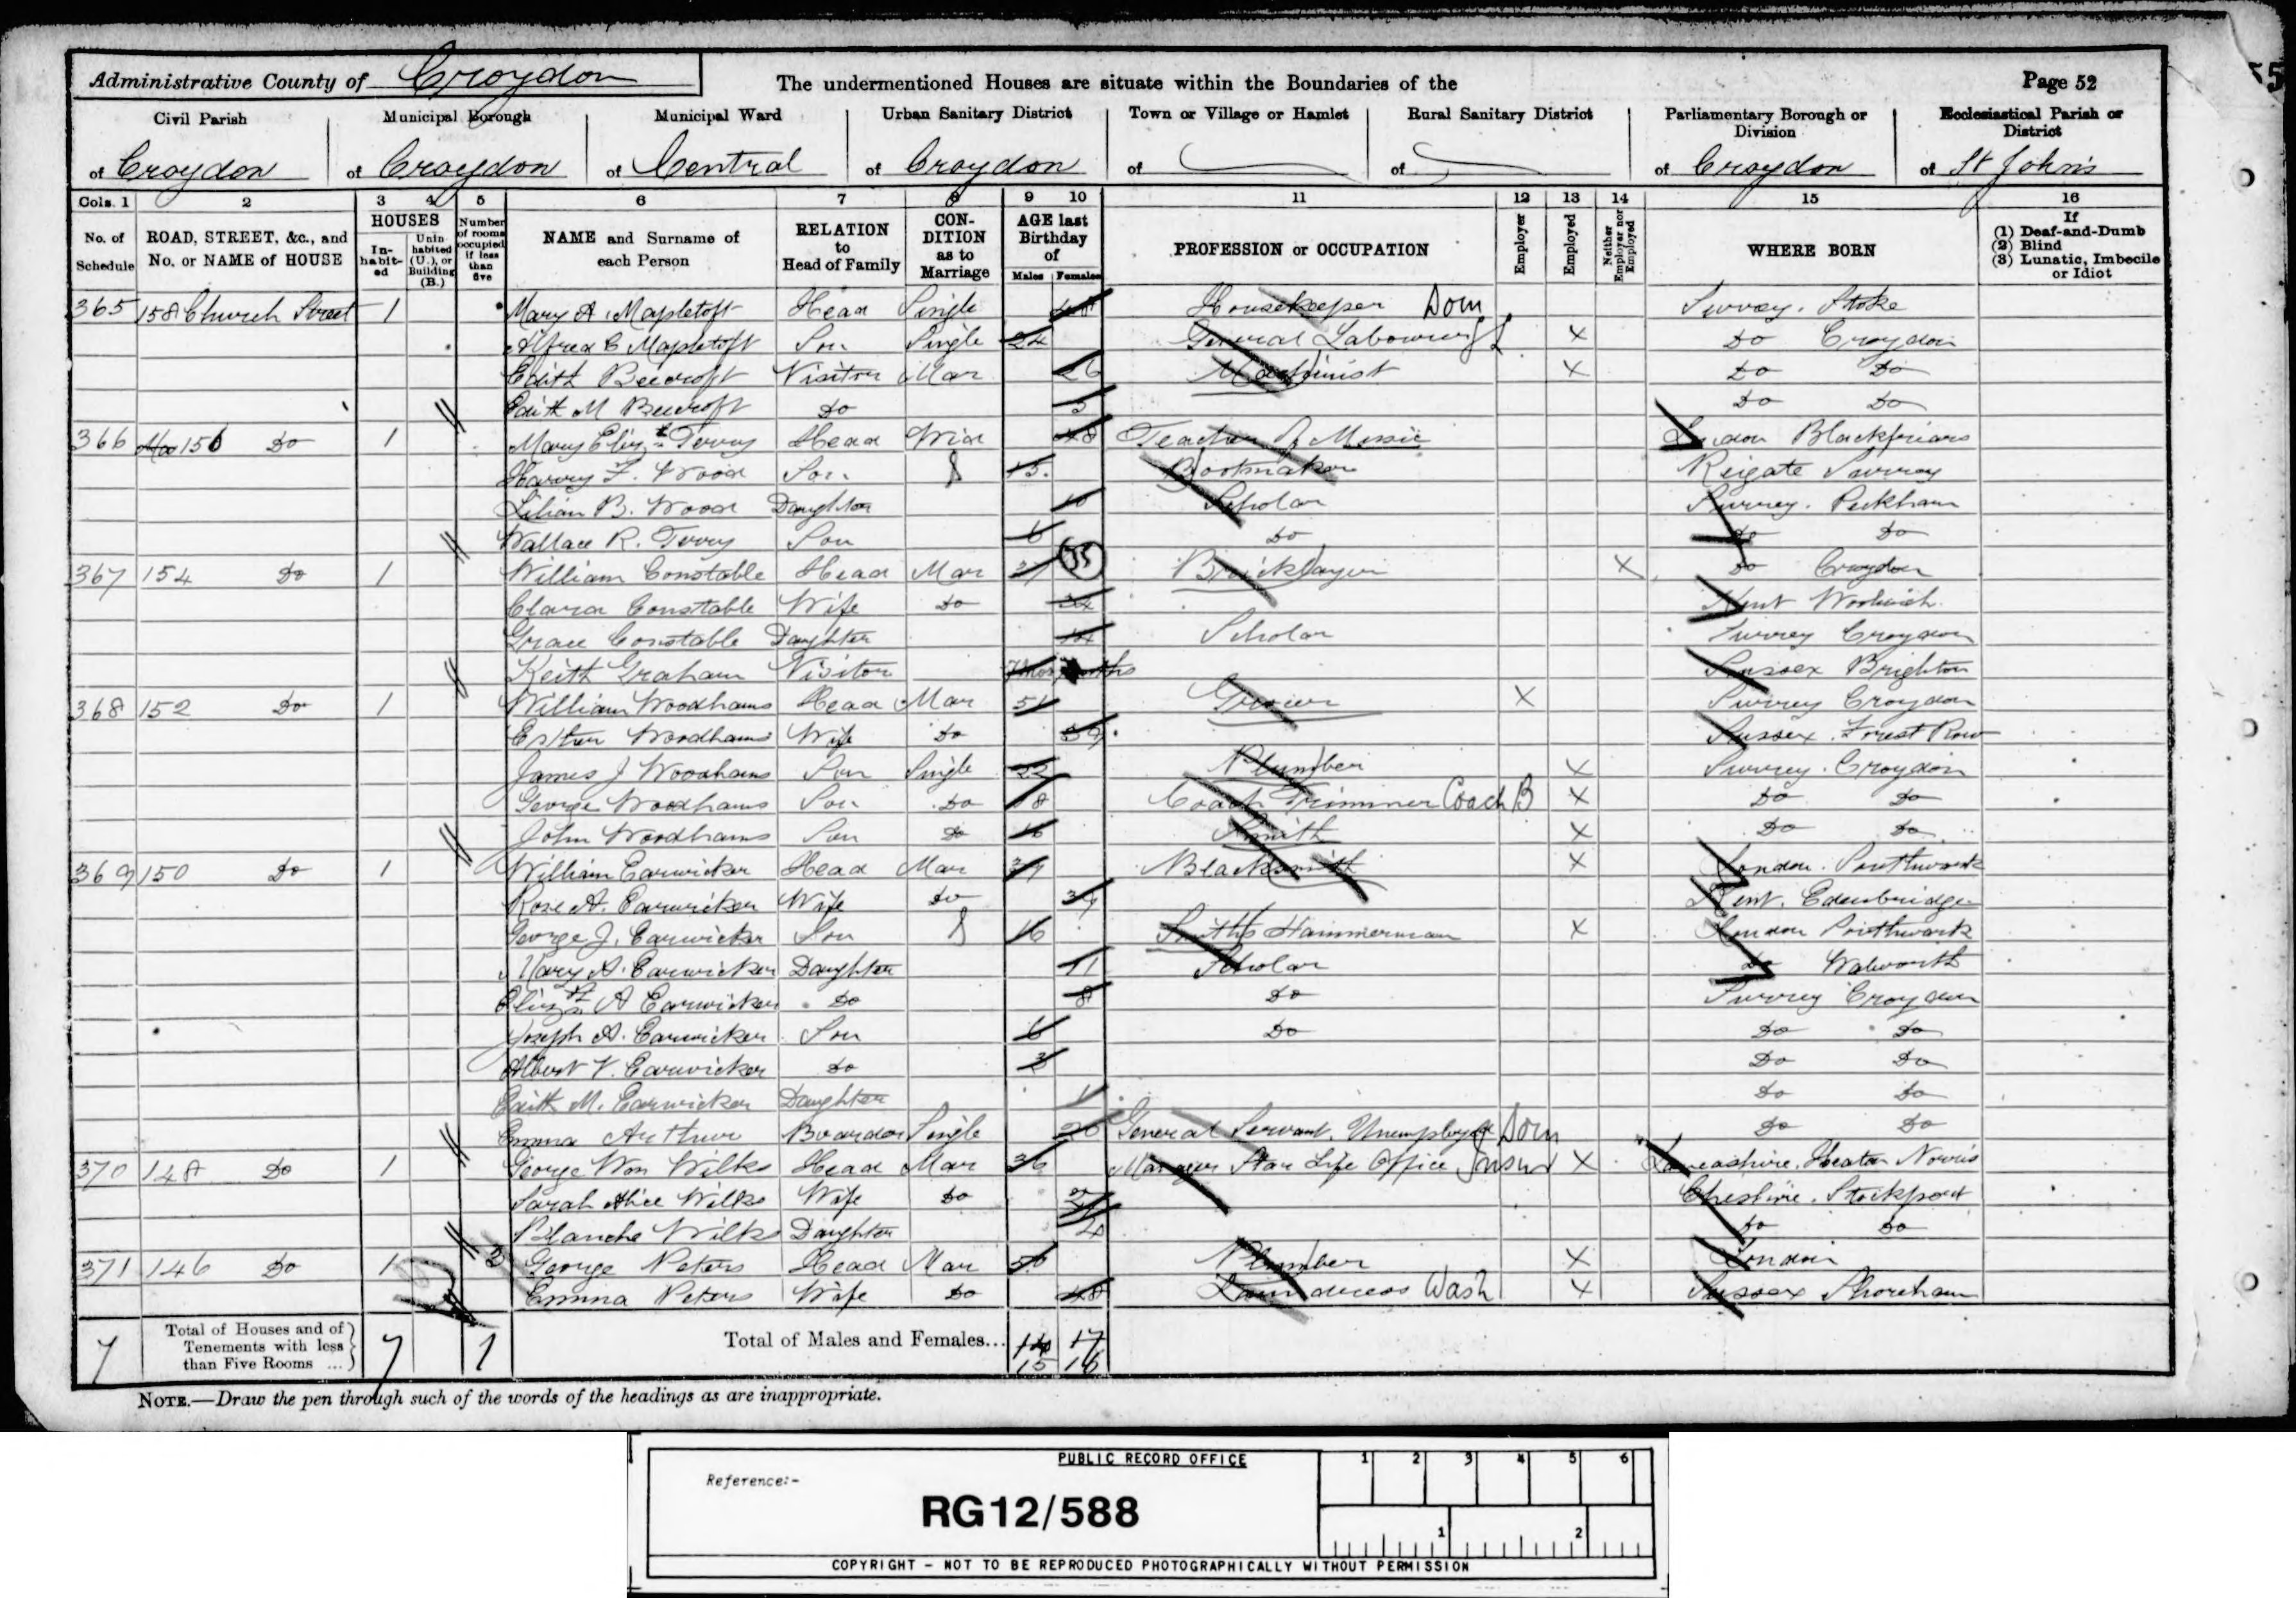 Administrative County of Croydon The undermentioned Houses are situate within the Boundaries of the Page 52
55
Civil Parish Municipal Borough Municipal Ward Urban Sanitary District Town or Village or Hamlet Rural Sanitary District Parliamentary Borough or Division Ecclesiastical Parish or District
of Croydon of Croydon of Central of Croydon of of of Croydon of St John's
Cols. 1 2 3 4 5 6 7 8 9 10 11 12 13 14 15 16
No. of Schedule ROAD, STREET, &c., and No. or NAME of HOUSE HOUSES In-habit-ed Unin-habited (U.), or Building (B.) Number of rooms occupied if less than five NAME and Surname of each Person RELATION to Head of Family CON-DITION as to Marriage AGE last Birthday of Males Females PROFESSION or OCCUPATION Employer Employed Neither Employer nor Employed WHERE BORN If (1) Deaf-and-Dumb (2) Blind (3) Lunatic, Imbecile or Idiot
365 158 Church Street 1 Mary A Mapletoft Head Single 48 Housekeeper Dom Surrey. Stoke
Alfred C Mapletoft Son Single 24 General Labourer X Do Croydon
Edith Beecroft Visitor Mar 26 Machinist X Do Do
Edith M Beecroft Do 5 Do Do
366 156 Do 1 Mary Elizth Terry Head Wid 48 Teacher of Music London Blackfriars
Harry F. Wood Son S 15 Bootmaker Reigate Surrey
Lilian B. Wood Daughter 10 Scholar Surrey. Peckham
Wallace R. Terry Son 6 Do Do Do
367 154 Do 1 William Constable Head Mar 37 35 Bricklayer X Do Croydon
Clara Constable Wife Do 34 Kent Woolwich
Grace Constable Daughter 14 Scholar Surrey Croydon
Keith Graham Visitor 7 mos Sussex Brighton
368 152 Do 1 William Woodhams Head Mar 51 Grocer X Surrey Croydon
Esther Woodhams Wife Do 59 Sussex. Forest Row
James J Woodhams Son Single 22 Plumber X Surrey. Croydon
George Woodhams Son Do 18 Coach Trimmer Coach B X Do Do
John Woodhams Son Do 16 Smith X Do Do
369 150 Do 1 William Earwicker Head Mar 39 Blacksmith X London. Southwark
Rose A. Earwicker Wife Do 39 Kent. Edenbridge
George J. Earwicker Son S 16 Smith's Hammerman X London Southwark
Mary A. Earwicker Daughter 11 Scholar Do Walworth
Elizth A Earwicker Do 8 Do Surrey Croydon
Joseph A. Earwicker Son 6 Do Do Do
Albert V. Earwicker Do 3 Do Do
Edith M. Earwicker Daughter 1 Do Do
Emma Arthur Boarder Single 20 General Servant. Unemployed Dom Do Do
370 148 Do 1 George Wm Wilks Head Mar 36 Manager Star Life Office Insur X Lancashire. Heaton Norris
Sarah Alice Wilks Wife Do Cheshire. Stockport
Blanche Wilks Daughter 4 Do Do
371 146 Do 1 3 George Peters Head Mar 50 Plumber X London
Emma Peters Wife Do 48 Laundress Wash X Sussex Shoreham
7 Total of Houses and of Tenements with less than Five Rooms ... 7 1 Total of Males and Females... 14 17
15 16
NOTE.—Draw the pen through such of the words of the headings as are inappropriate.
PUBLIC RECORD OFFICE 1 2 3 4 5 6
Reference:-
RG12/588
1 2
COPYRIGHT - NOT TO BE REPRODUCED PHOTOGRAPHICALLY WITHOUT PERMISSION